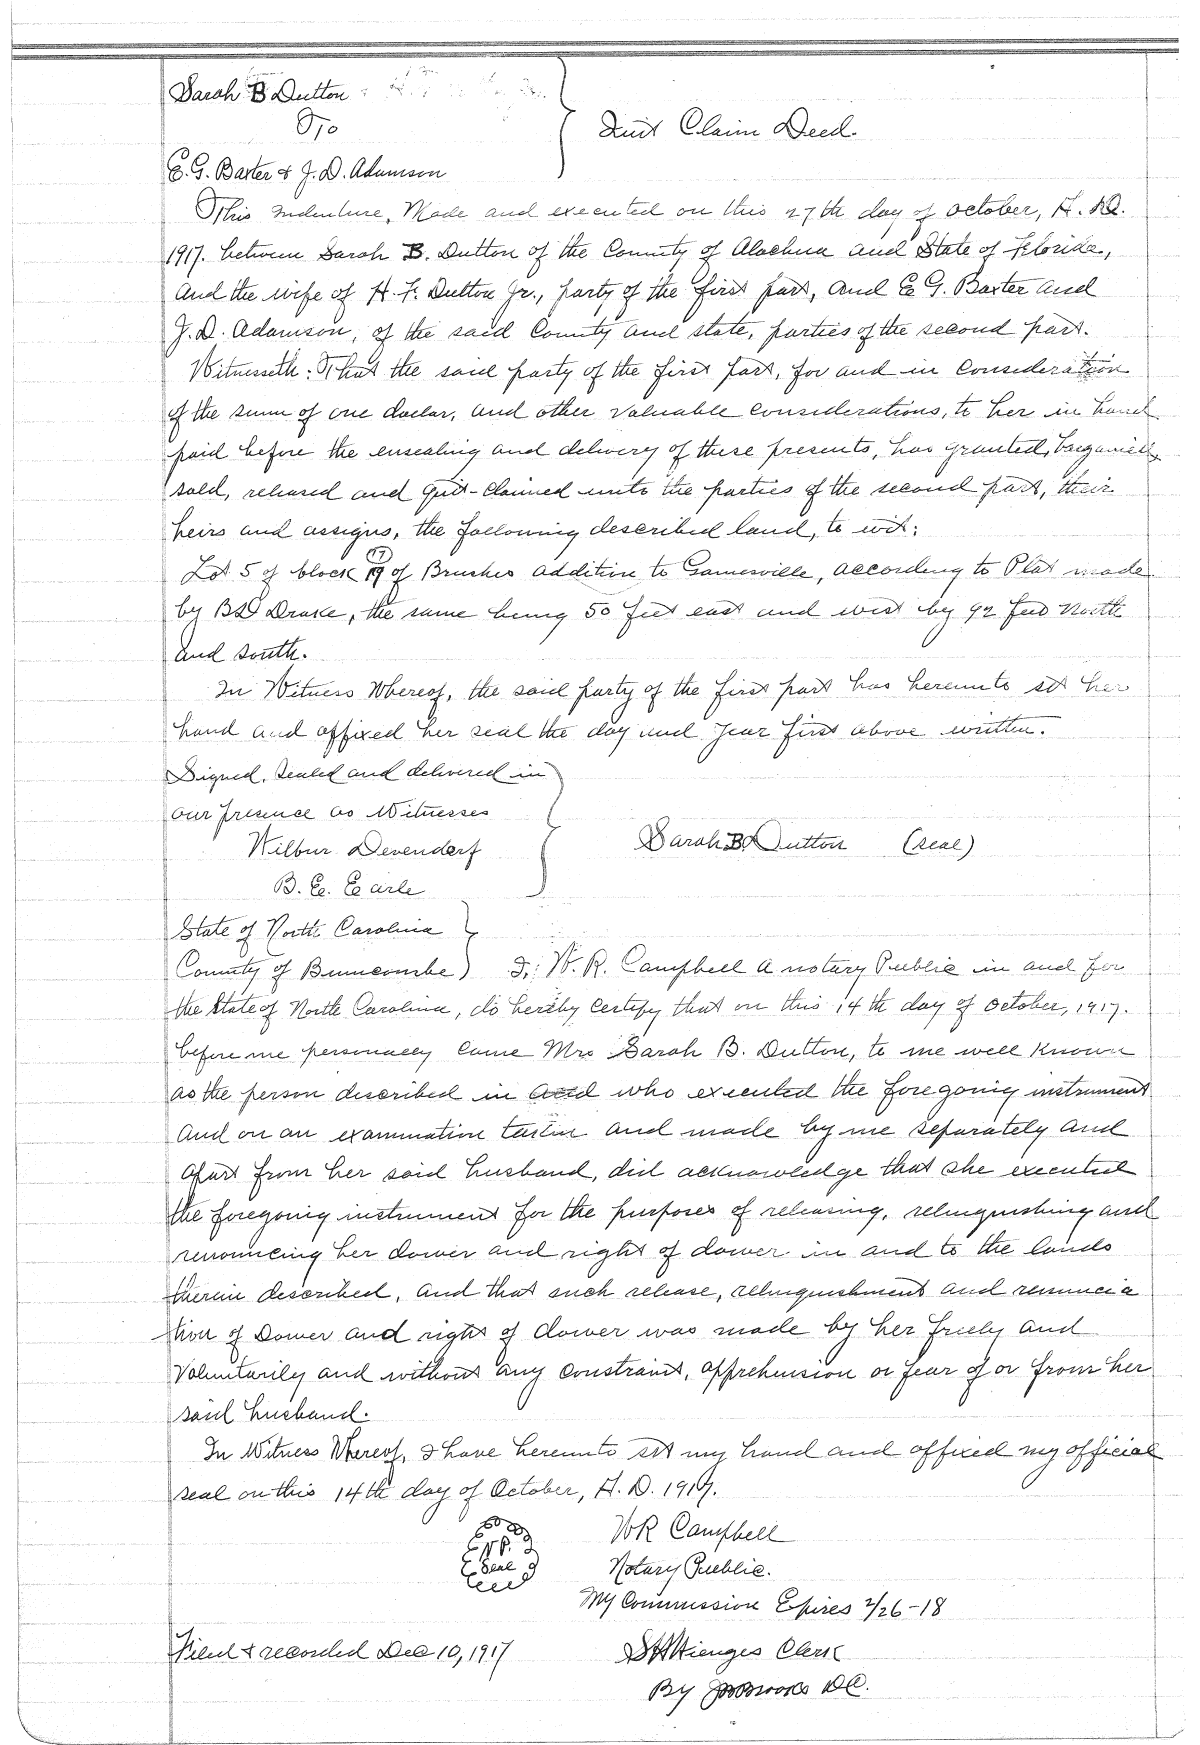 Sarah B Dutton
To
Quit Claim Deed.
E. G. Baxter & J. D. Adamson
This Indenture, Made and executed on this 27th day of October, A. D.
1917. between Sarah B. Dutton of the County of Alachua and State of Florida,
and the wife of H. F. Dutton Jr., party of the first part, and E G. Baxter and
J. D. Adamson, of the said County and state, parties of the second part.
Witnesseth: That the said party of the first part, for and in Consideration
of the sum of one dollar, and other valuable considerations, to her in hand
paid before the ensealing and delivery of these presents, has granted, bargained
sold, released and quit-claimed unto the parties of the second part, their
heirs and assigns, the following described land, to wit:
Lot 5 of block 19 of Brushes addition to Gainesville, according to Plat made
by Drake, the same being 50 feet east and west by 92 feet North
and south.
In Witness Whereof, the said party of the first part has hereunto set her
hand and affixed her seal the day and year first above written.
Signed, sealed and delivered in
our presence as Witnesses
Wilbur Devendorf
Sarah B. Dutton (seal)
B. E. Earle
State of North Carolina
County of Buncombe) I, W. R. Campbell a notary Public in and for
the State of North Carolina, do hereby certify that on this 14th day of October, 1917.
before me personally came Mrs Sarah B. Dutton, to me well known
as the person described in and who executed the foregoing instrument
and on an examination taken and made by me separately and
apart from her said husband, did acknowledge that she executed
the foregoing instrument for the purposes of releasing, relinquishing and
renouncing her dower and right of dower in and to the lands
therein described, and that such release, relinquishment and renuncia
tion of Dower and right of dower was made by her freely and
Voluntarily and without any constraint, apprehension or fear of or from her
said husband.
In Witness Whereof, I have hereunto set my hand and affixed my official
seal on this 14th day of October, A. D. 1917.
WR Campbell
N.P.
Seal
Notary Public.
My Commission Expires 2/26-18
Filed & recorded Dec 10, 1917
S H Wienges Clerk
By Brooks D C.